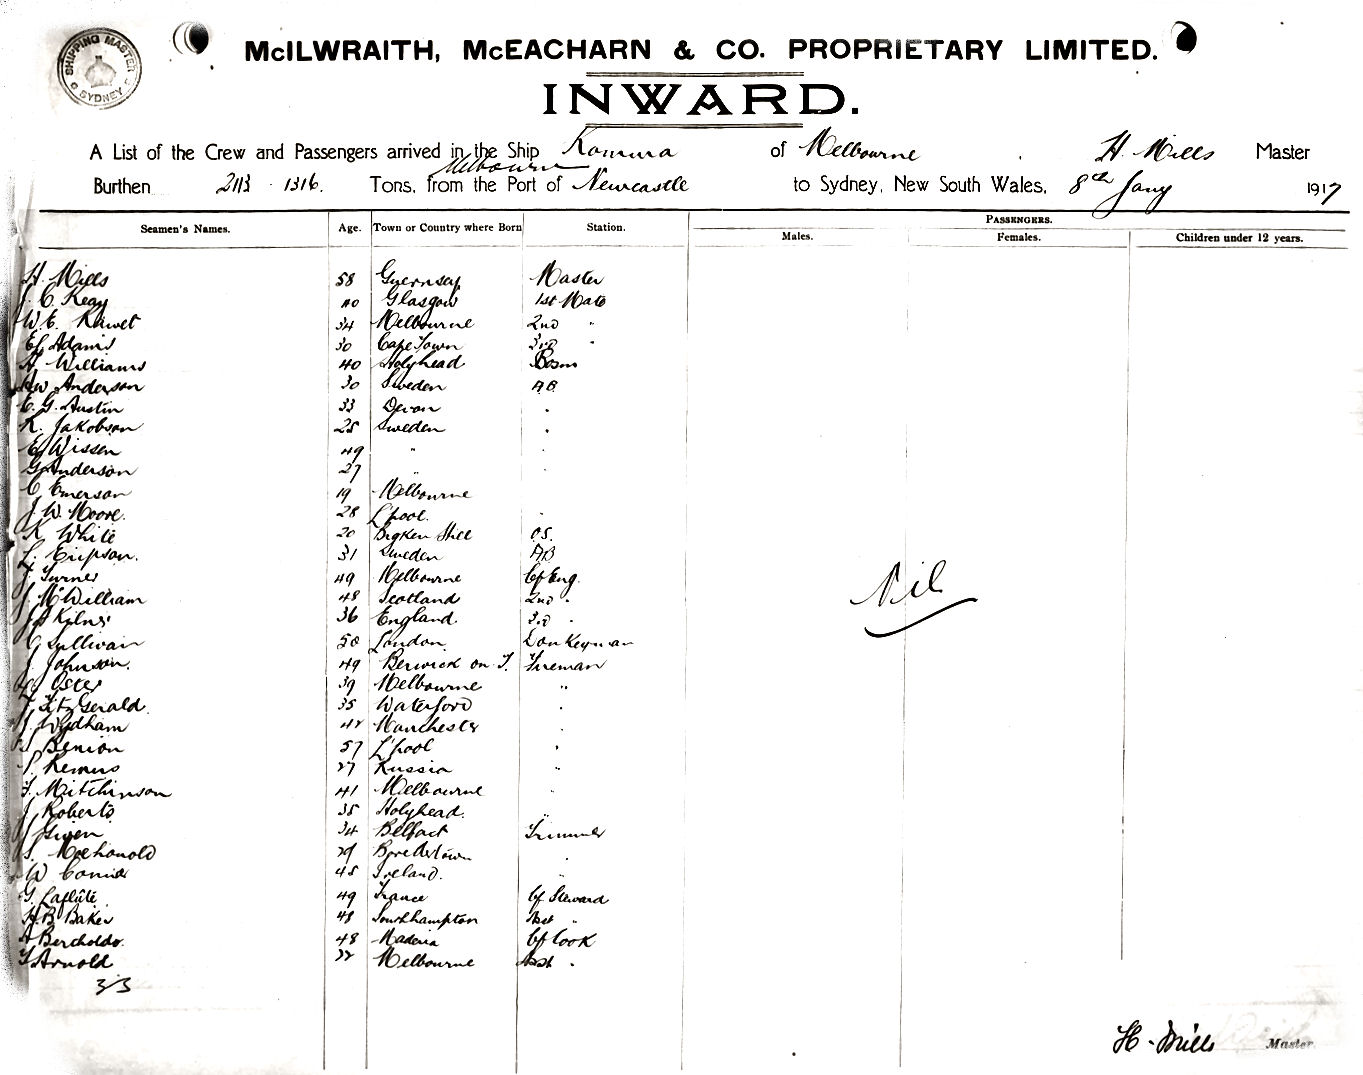 SHIPPING MASTER
SYDNEY
McILWRAITH, McEACHARN & CO. PROPRIETARY LIMITED.
INWARD.
A List of the Crew and Passengers arrived in the Ship Komura of Melbourne H. Mills Master
Melbourne
Burthen 2113 - 1316. Tons, from the Port of Newcastle to Sydney, New South Wales, 8th Jany 1917
PASSENGERS.
Seamen's Names. Age. Town or Country where Born Station. Males. Females. Children under 12 years.
H. Mills 58 Guernsey Master
J. C. Keay 40 Glasgow 1st Mate
W. E. 34 Melbourne 2nd "
Adams 30 Cape Town 3rd "
A. Williams 40 Holyhead Bosn
Anderson 30 Sweden AB
E. G. Austin 33 Devon "
K. Jakobson 25 Sweden "
E. Wissen 49 " "
G. Anderson 27 " "
C. Emerson 19 Melbourne "
J. W. Moore. 28 L'pool. "
K. White 20 Broken Hill OS.
L. 31 Sweden AB
J. Turner 49 Melbourne Cf Eng.
J. McWilliam 48 Scotland 2nd "
Kilner 36 England. 3rd "
C. Sullivan 50 London. Donkeyman
J. Johnson. 49 Berwick on T. Fireman
Oster 39 Melbourne "
J. FitzGerald. 35 Waterford "
J. Wydham 42 Manchester "
S. Benion 57 L'pool "
S. Remus 27 Russia "
J. Mutchinson 41 Melbourne "
J. Roberts 35 Holyhead. "
Given 34 Belfast Trimmer
S. 29 "
W. Connor 45 Ireland. "
G. Laflute. 49 France Cf Steward
H. B. Baker 48 Southhampton Asst "
A. Bercholdo. 48 Maderia Cf Cook
Arnold 32 Melbourne Asst "
33
Nil
H. Mills Master.